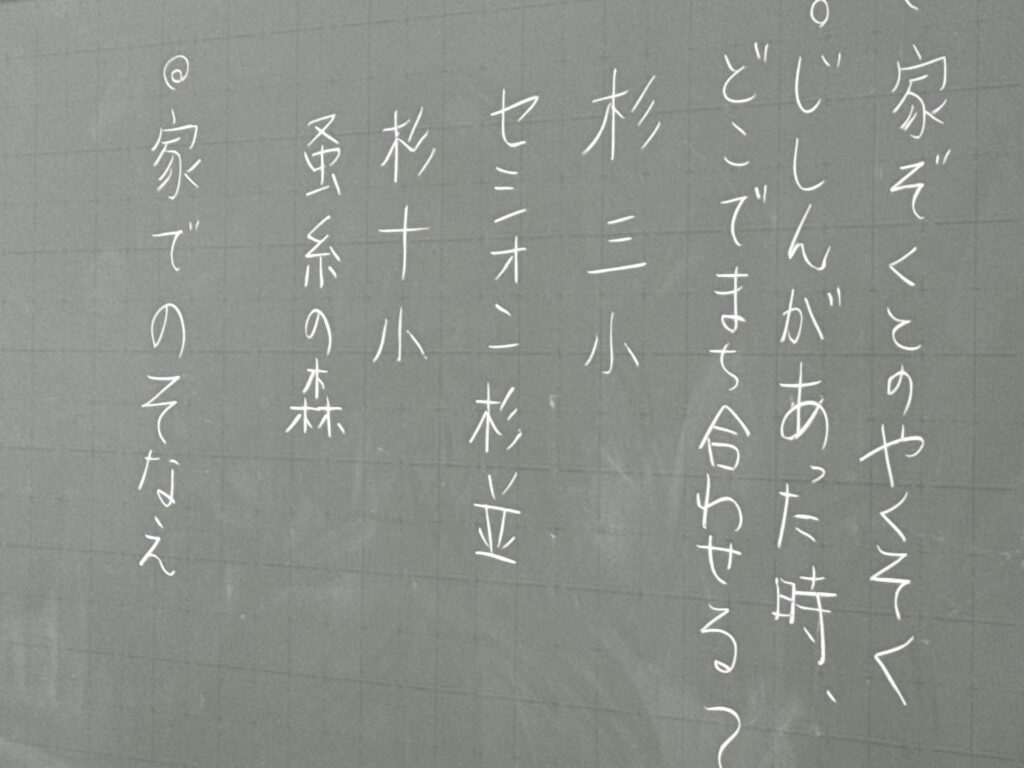 家ぞくとのやくそく
。じしんがあった時、
どこでまち合わせる
杉三小
セシオン杉並
杉十小
蚕糸の森
◎家でのそなえ